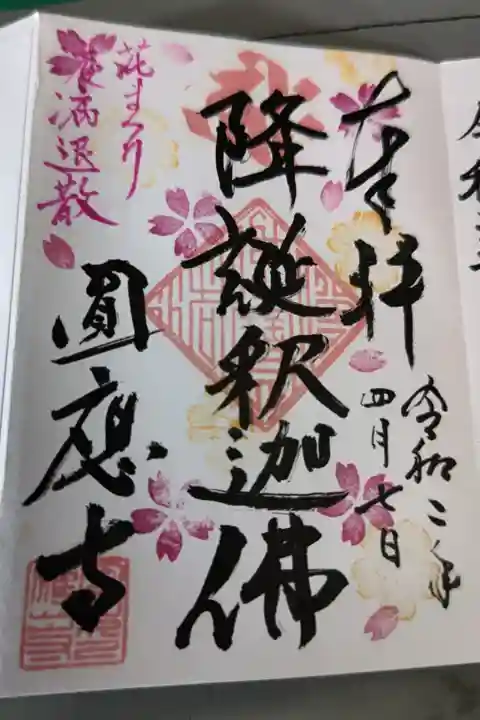 奉拝
令和二年
四月七日
降誕釈迦佛
圓應寺
花まつり
退散